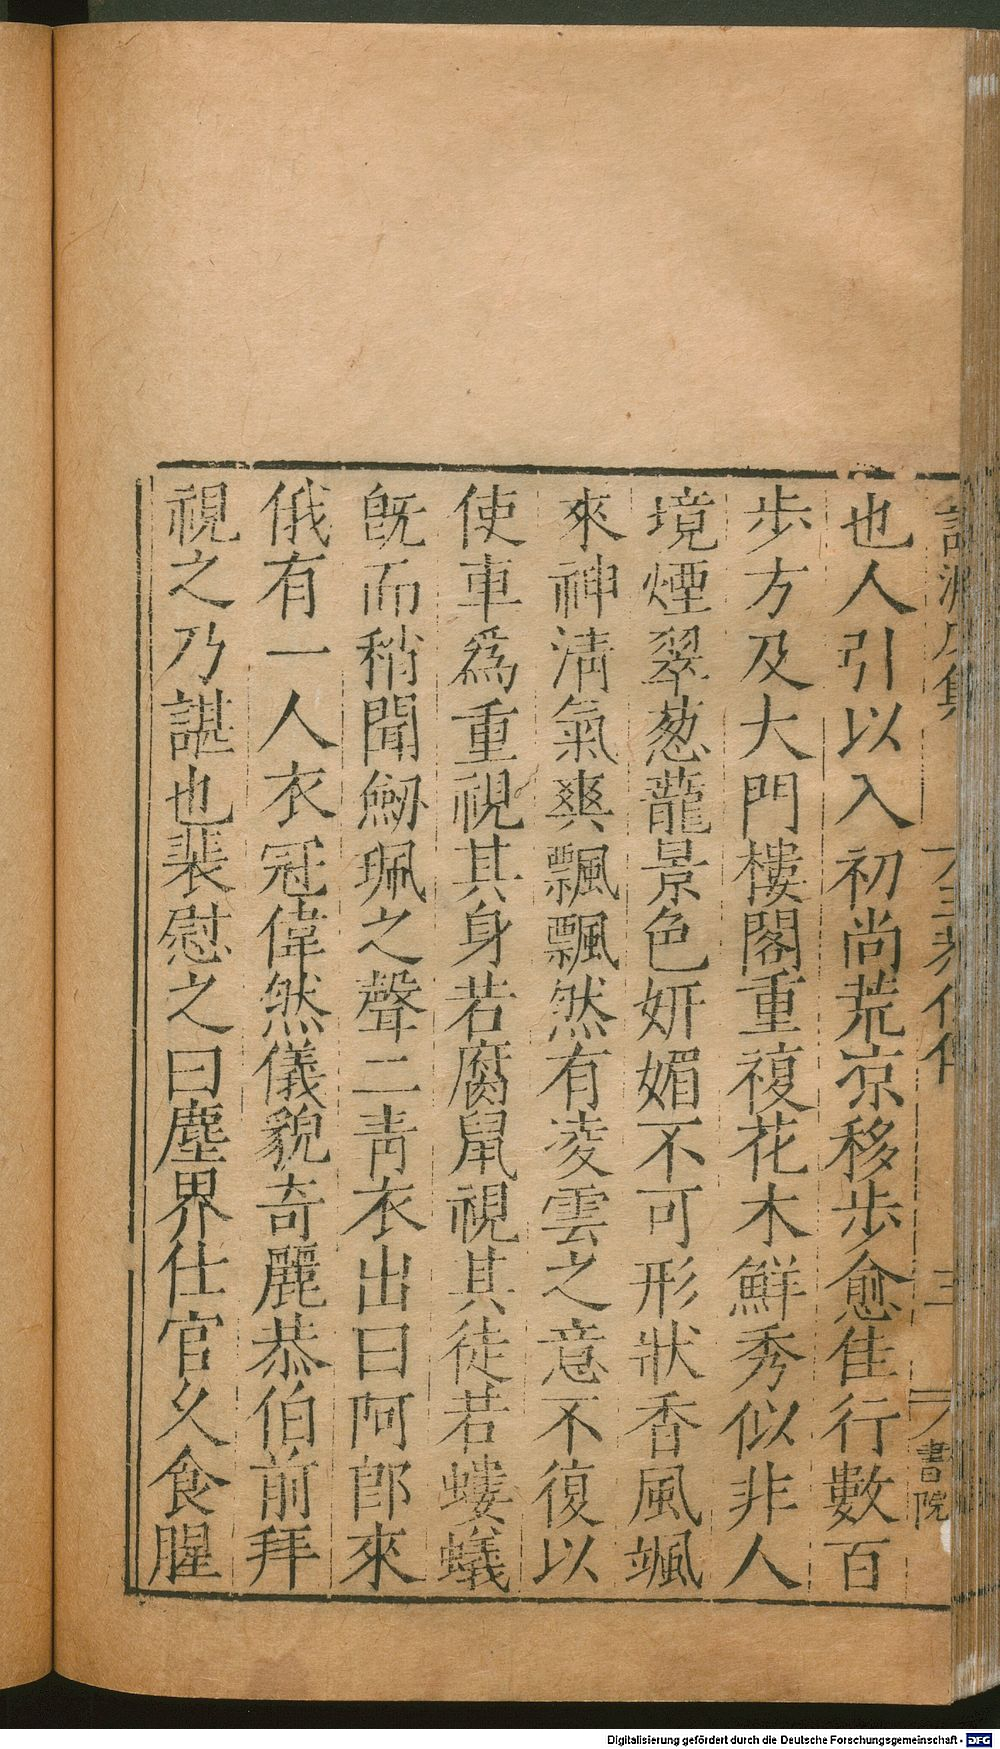 也人引以入初尚荒凉移步愈佳行數百
步方及大門樓閣重複花木鮮秀似非人
境煙翠葱蘢景色妍媚不可形狀香風颯
來神清氣爽飄飄然有凌雲之意不復以
使車爲重視其身若腐鼠視其徒若螻蟻
旣而稍聞劒珮之聲二青衣出曰阿郎來
俄有一人衣冠偉然儀貌奇麗恭伯前拜
視之乃諶也裴慰之曰塵界仕官久食腥
三
書院
Digitalisierung gefördert durch die Deutsche Forschungsgemeinschaft - DFG